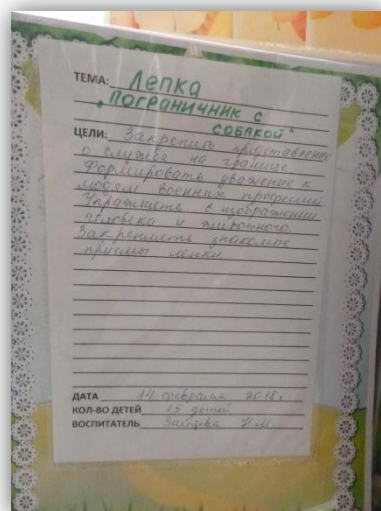 ТЕМА: Лепка
„Пограничник с
собакой"
ЦЕЛИ: Закрепить представление
о службе на границе.
Формировать уважение к
людям военных профессий
Упражнять в изображении
человека и животного.
Закреплять знакомые
приемы лепки
ДАТА 14 февраля 2018г
КОЛ-ВО ДЕТЕЙ 15 детей
ВОСПИТАТЕЛЬ Зайцева Н.М.